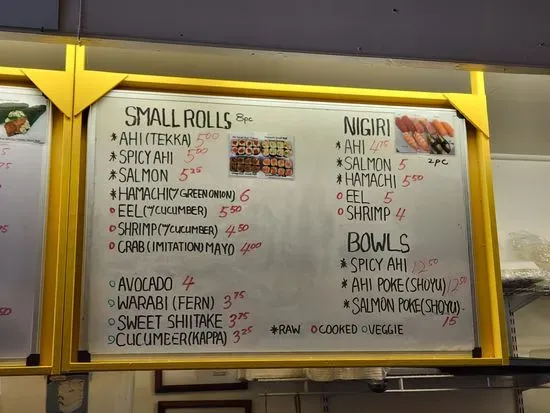 SMALL ROLLS 8pc
*AHI (TEKKA) 5.00
*SPICY AHI 5.00
*SALMON 5.25
*HAMACHI (W/GREEN ONION) 6
○EEL (W/CUCUMBER) 5.50
○SHRIMP (W/CUCUMBER) 4.50
○CRAB (IMITATION) MAYO 4.00
○AVOCADO 4
○WARABI (FERN) 3.75
○SWEET SHIITAKE 3.75
○CUCUMBER (KAPPA) 3.25
*RAW ○COOKED ○VEGGIE
NIGIRI
2pc
*AHI 4.75
*SALMON 5
*HAMACHI 5.50
○EEL 5
○SHRIMP 4
BOWLS
*SPICY AHI 12.50
*AHI POKE (SHOYU) 12.50
*SALMON POKE (SHOYU)
15